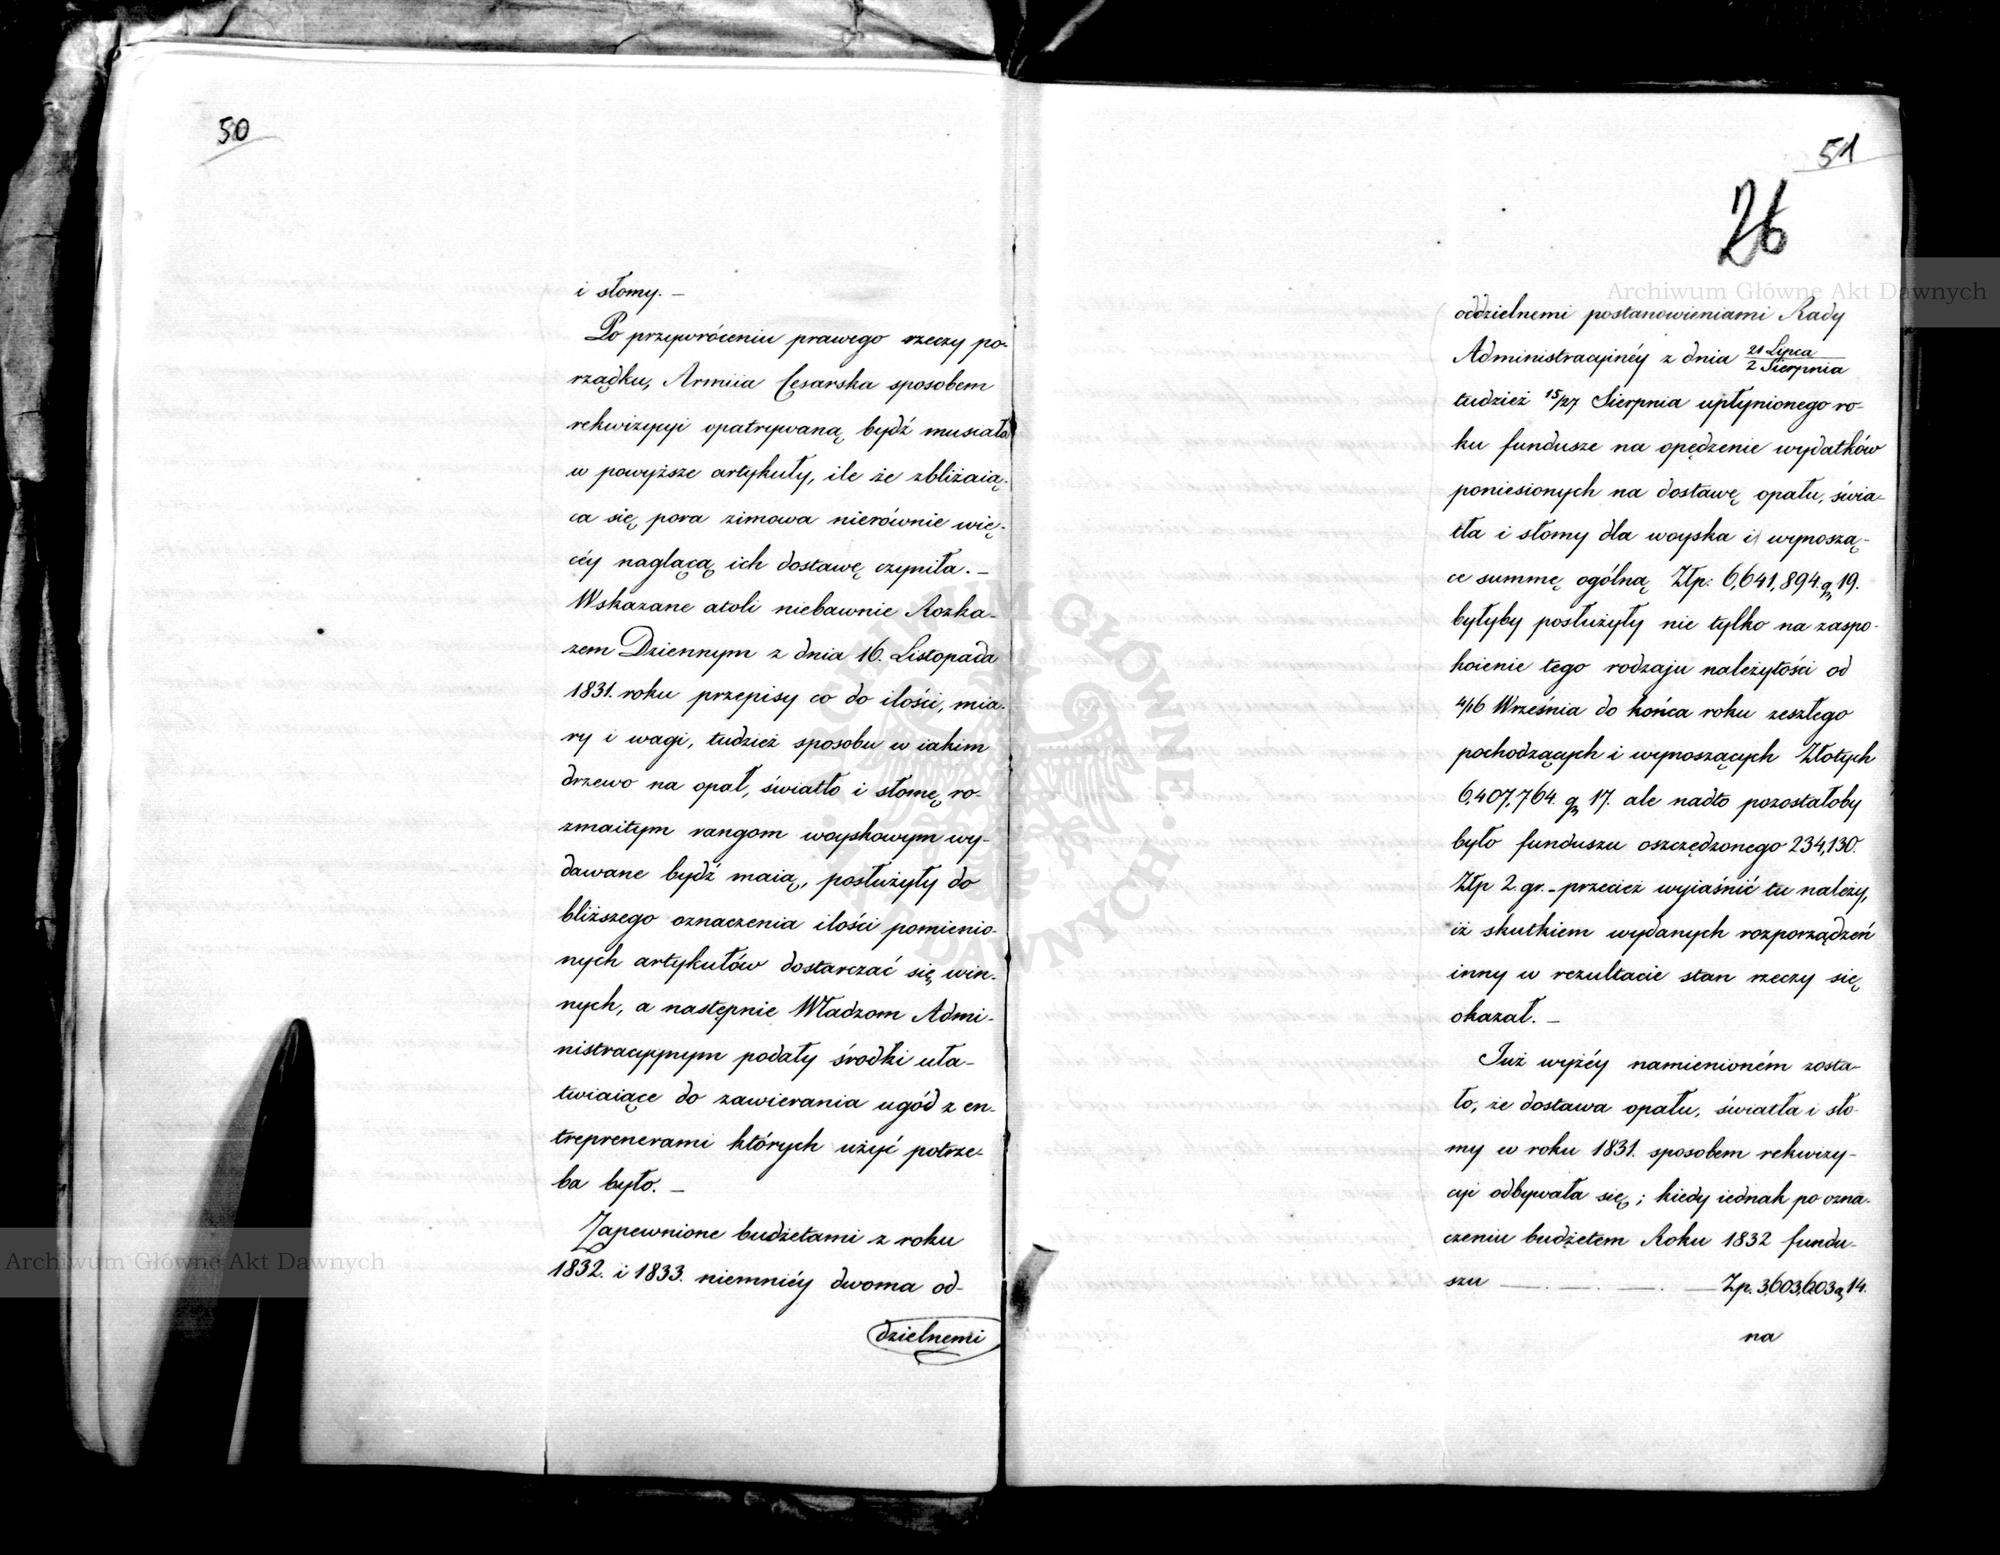 50
i słomy. –
Po przywróceniu prawego rzeczy po-
rządku, Armiia Cesarska sposobem
rekwizycyi opatrywaną bydź musiała
w powyższe artykuły, ile że zbliżaią-
ca się pora zimowa nierównie wię-
céy naglącą ich dostawę czyniła. –
Wskazane atoli niebawnie Rozka-
zem Dziennym z dnia 16. Listopada
1831. roku przepisy co do ilości, mia-
ry i wagi, tudzież sposobu w iakim
drzewo na opał, światło i słomę ro-
zmaitym rangom woyskowym wy-
dawane bydź maią, posłużyły do
bliższego oznaczenia ilości pomienio-
nych artykułów dostarczać się win-
nych, a następnie Władzom Admi-
nistracyjnym podały środki uła-
twiaiące do zawierania ugód z en-
treprenerami których użyć potrze-
ba było. –
Zapewnione budżetami z roku
1832. i 1833. niemniéy dwoma od-
dzielnemi
51
26
oddzielnemi postanowieniami Rady
Administracyinéy z dnia 21 Lipca/2 Sierpnia
tudzież 15/27 Sierpnia upłynionego ro-
ku fundusze na opędzenie wydatków
poniesionych na dostawę opału, świa-
tła i słomy dla woyska i wynoszą-
ce summę ogólną Złp: 6,641,894. gr 19.
byłyby posłużyły nie tylko na zaspo-
koienie tego rodzaju należytości od
4/16 Września do końca roku zeszłego
pochodzących i wynoszących Złotych
6,407,764. gr 17. ale nadto pozostałoby
było funduszu oszczędzonego 234,130.
Złp 2. gr. – przecież wyiaśnić tu należy,
iż skutkiem wydanych rozporządzeń
inny w rezultacie stan rzeczy się
okazał. –
Już wyżéy namienioném zosta-
ło, że dostawa opału, światła i sło-
my w roku 1831. sposobem rekwizy-
cyi odbywała się; kiedy iednak po ozna-
czeniu budżetem Roku 1832 fundu-
szu — . — . — . — Zp. 3,603,603 gr 14.
na
Archiwum Główne Akt Dawnych
Archiwum Główne Akt Dawnych
ARCHIWUM GŁÓWNE · AKT DAWNYCH ·